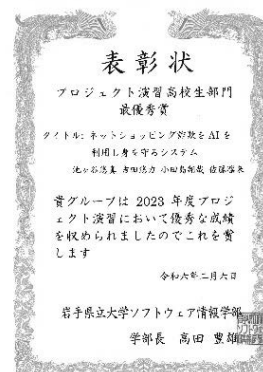 表彰状
プロジェクト演習高校生部門
最優秀賞
タイトル: ネットショッピング詐欺をAIを
利用し身を守るシステム
貴グループは 2023 年度プロジ
ェクト演習において優秀な成績
を収められましたのでこれを賞
します
令和六年二月六日
岩手県立大学ソフトウェア情報学部
学部長 高田 豊雄